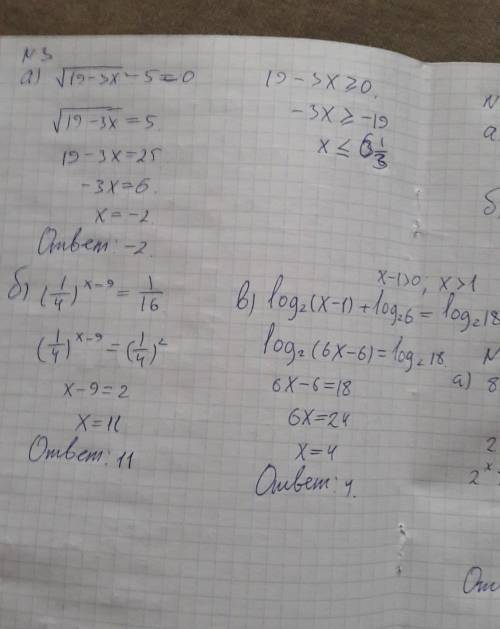 N 3
а) √(19-3x) - 5 = 0
√(19-3x) = 5
19-3x=25
-3x=6.
x=-2.
Ответ: -2.
19-3x≥0.
-3x≥-19
x≤6 1/3
б) (1/4)^(x-9) = 1/16
(1/4)^(x-9) = (1/4)^2
x-9=2
x=11
Ответ: 11
x-1>0, x>1
в) log₂(x-1)+log₂6=log₂18
log₂(6x-6)=log₂18.
6x-6=18
6x=24
x=4
Ответ: 4.
N
а
б
N
а) 8
2
2^x
От